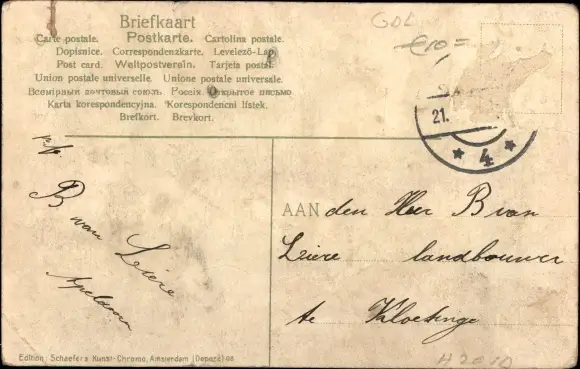 Briefkaart
Carte postale. Postkarte. Cartolina postale.
Dopisnice. Correspondenzkarte. Levelező-Lap.
Post card. Weltpostverein. Tarjeta postal.
Union postale universelle. Unione postale universale.
Всемірный почтовый союзъ. Россія. Открытое письмо
Karta korespondencyjna. Korespondencni listek.
Brefkort. Brevkort.
GOL
€10=
21.
4
B van
Leiere
Apeldoorn
AAN den Heer B van
Leiere landbouwer
te Kloetinge
Edition: Schaefers Kunst-Chromo, Amsterdam (Deposé)